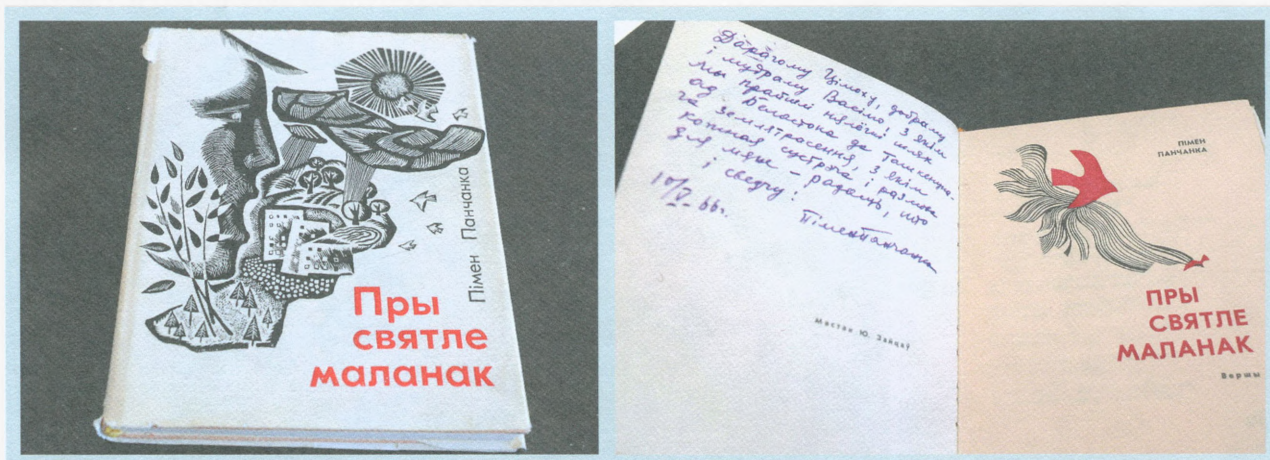 Пімен Панчанка
Пры
святле
маланак
Дарагому Цімоху, добраму
і мудраму Васілю! З якім
мы прайшлі нялёгкі шлях
ад Беластока да Ташкенцка-
га землятрасення, з якім
кожная сустрэча і размова
для мяне – радасць, што
і сведчу!
10/V. 66 г.
Пімен Панчанка
Мастак Ю. Зайцаў
ПІМЕН
ПАНЧАНКА
ПРЫ
СВЯТЛЕ
МАЛАНАК
Вершы